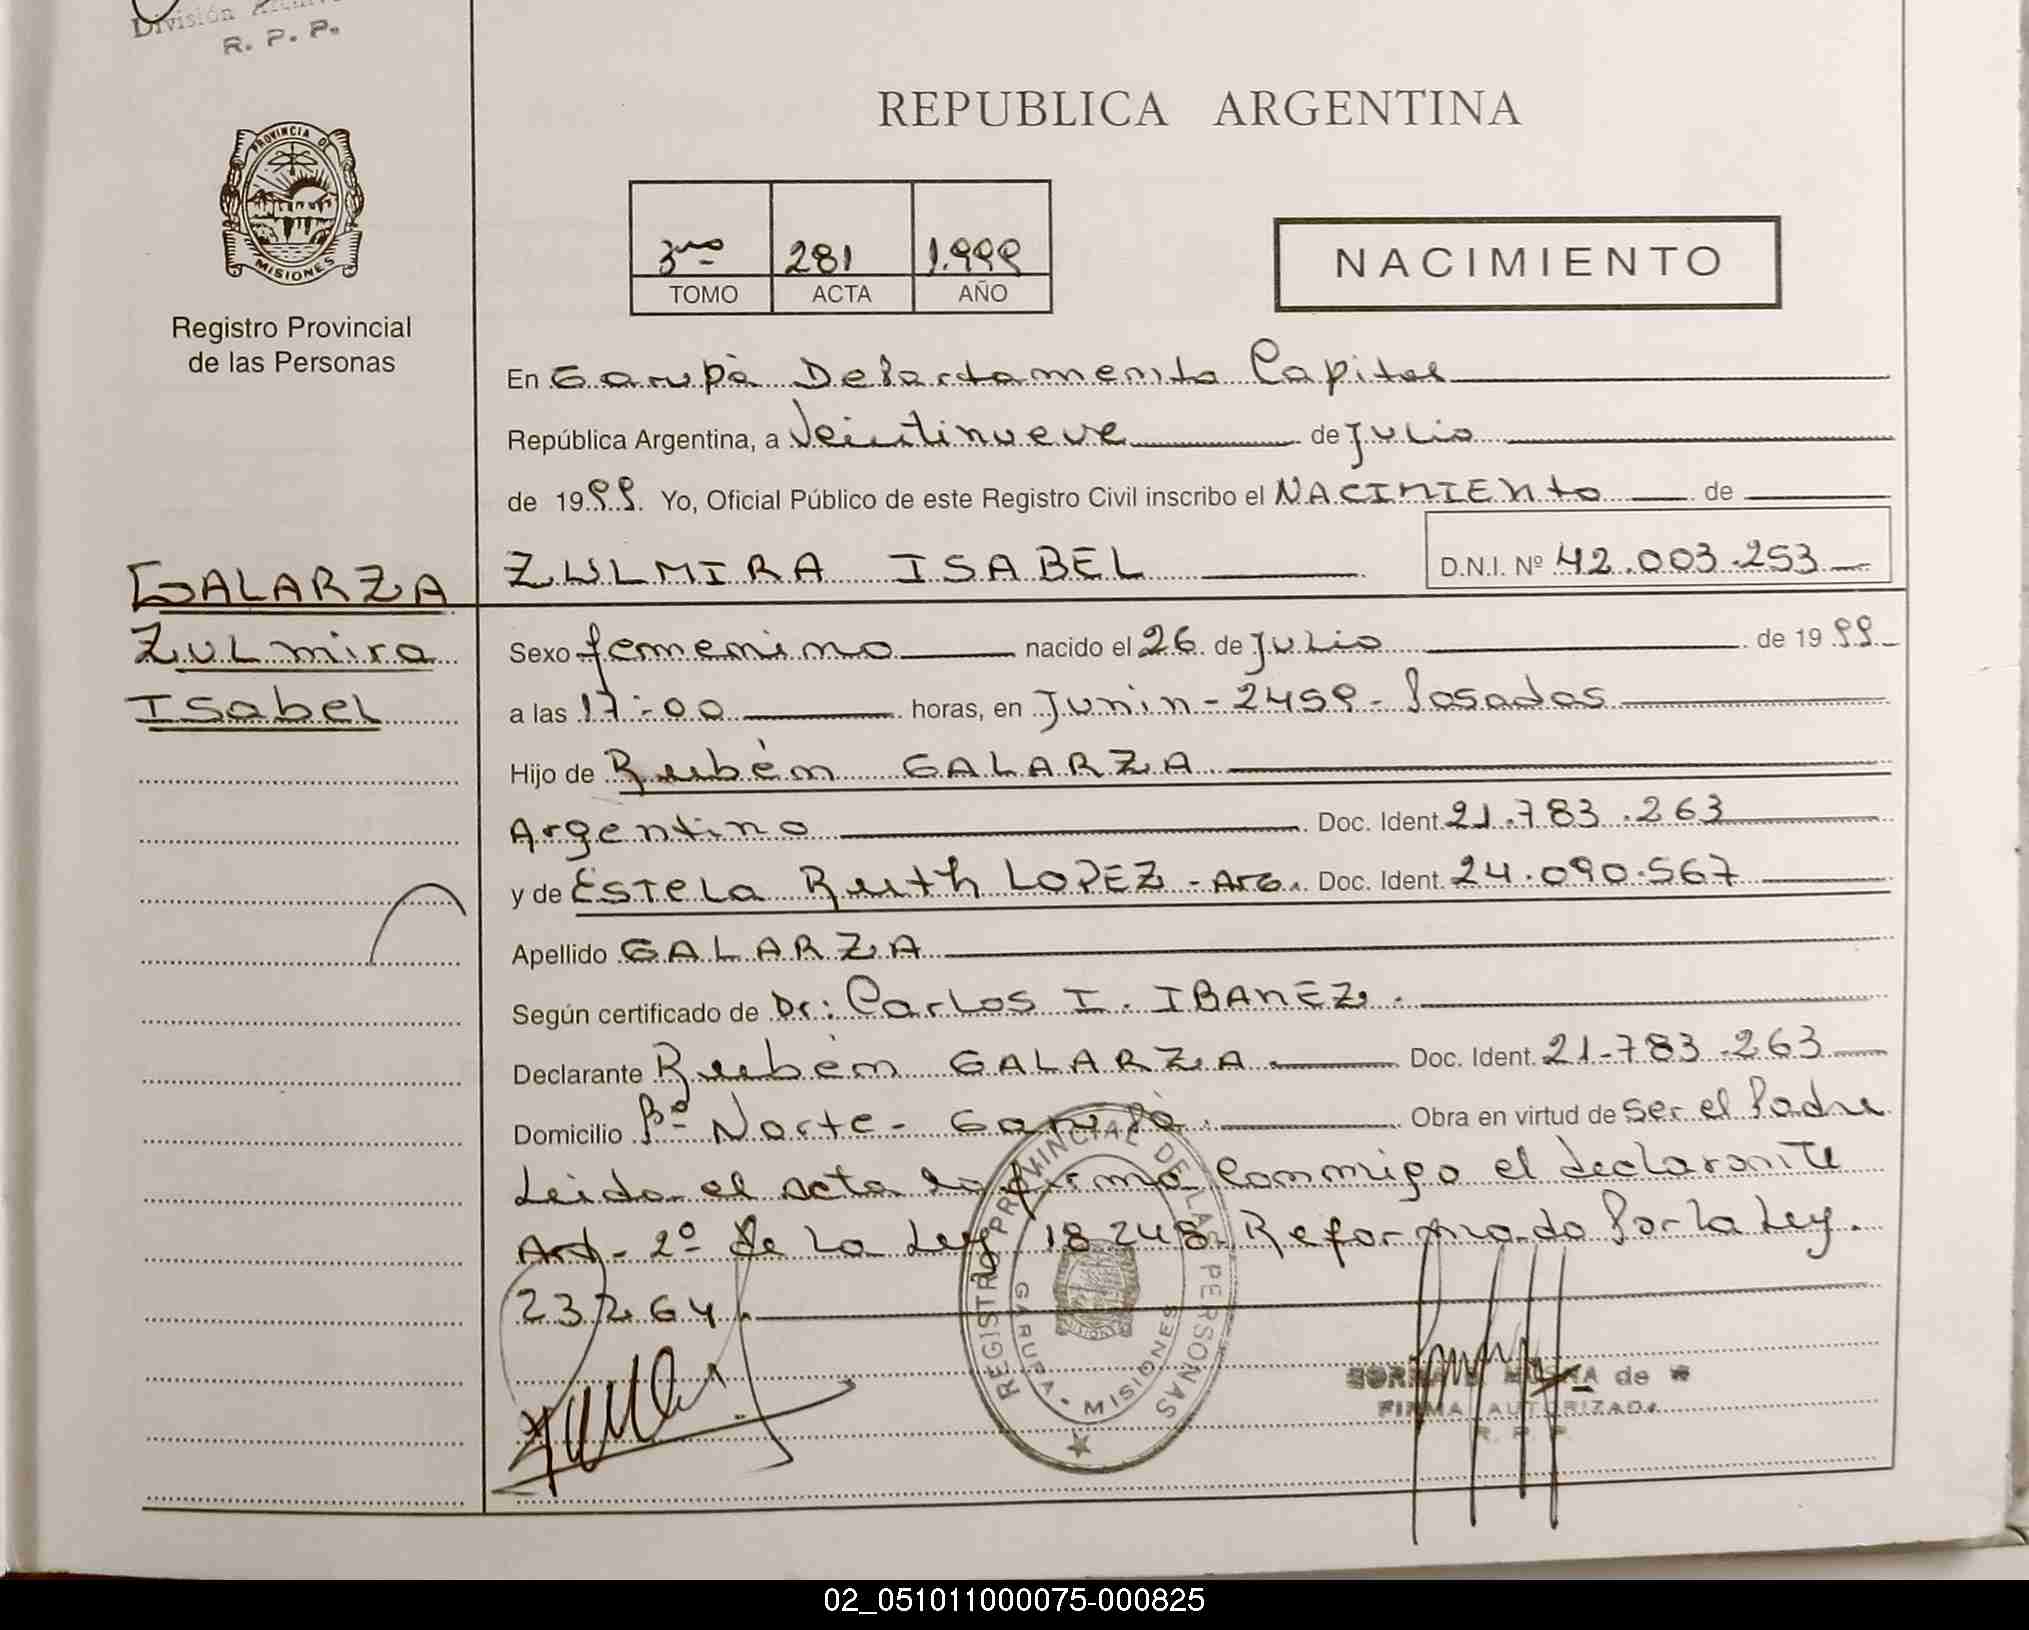 División
R. P. P.
REPUBLICA ARGENTINA
PROVINCIA DE
MISIONES
Registro Provincial
de las Personas
3ro 281 1.999
TOMO ACTA AÑO
NACIMIENTO
En Garupà Departamento Capital
República Argentina, a Veintinueve de Julio
de 1999. Yo, Oficial Público de este Registro Civil inscribo el NACIMIENto de
GALARZA ZULMIRA ISABEL D.N.I. Nº 42.003.253
Zulmira
Isabel
Sexo femenino nacido el 26 de Julio de 1999
a las 17:00 horas, en Junin - 2459 - Posadas
Hijo de Rubén GALARZA
Argentino Doc. Ident. 21.783.263
y de ESTELA Ruth LOPEZ - Arg. Doc. Ident. 24.090.567
Apellido GALARZA
Según certificado de Dr: Carlos I. IBANEZ.
Declarante Rubén GALARZA Doc. Ident. 21-783-263
Domicilio Bº Norte - Garupà. Obra en virtud de ser el Padre
Leida el acta la firma conmigo el declarante
Art- 2º de La Ley 18248. Reformado Por la Ley.
23264.
REGISTRO PROVINCIAL DE LAS PERSONAS
GARUPA • MISIONES
de
FIRMA AUTORIZADA
R. P. P.
02_051011000075-000825